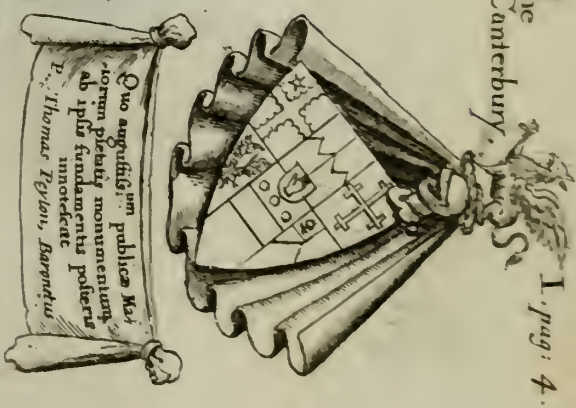 Canterbury.
I. pag: 4.
Quo auguſtiſs:um publicæ Ma:
iorum pietatis monumentum
ab ipſis fundamentis poſteris
innoteſcat
P. Thomas Peyton, Baronetus